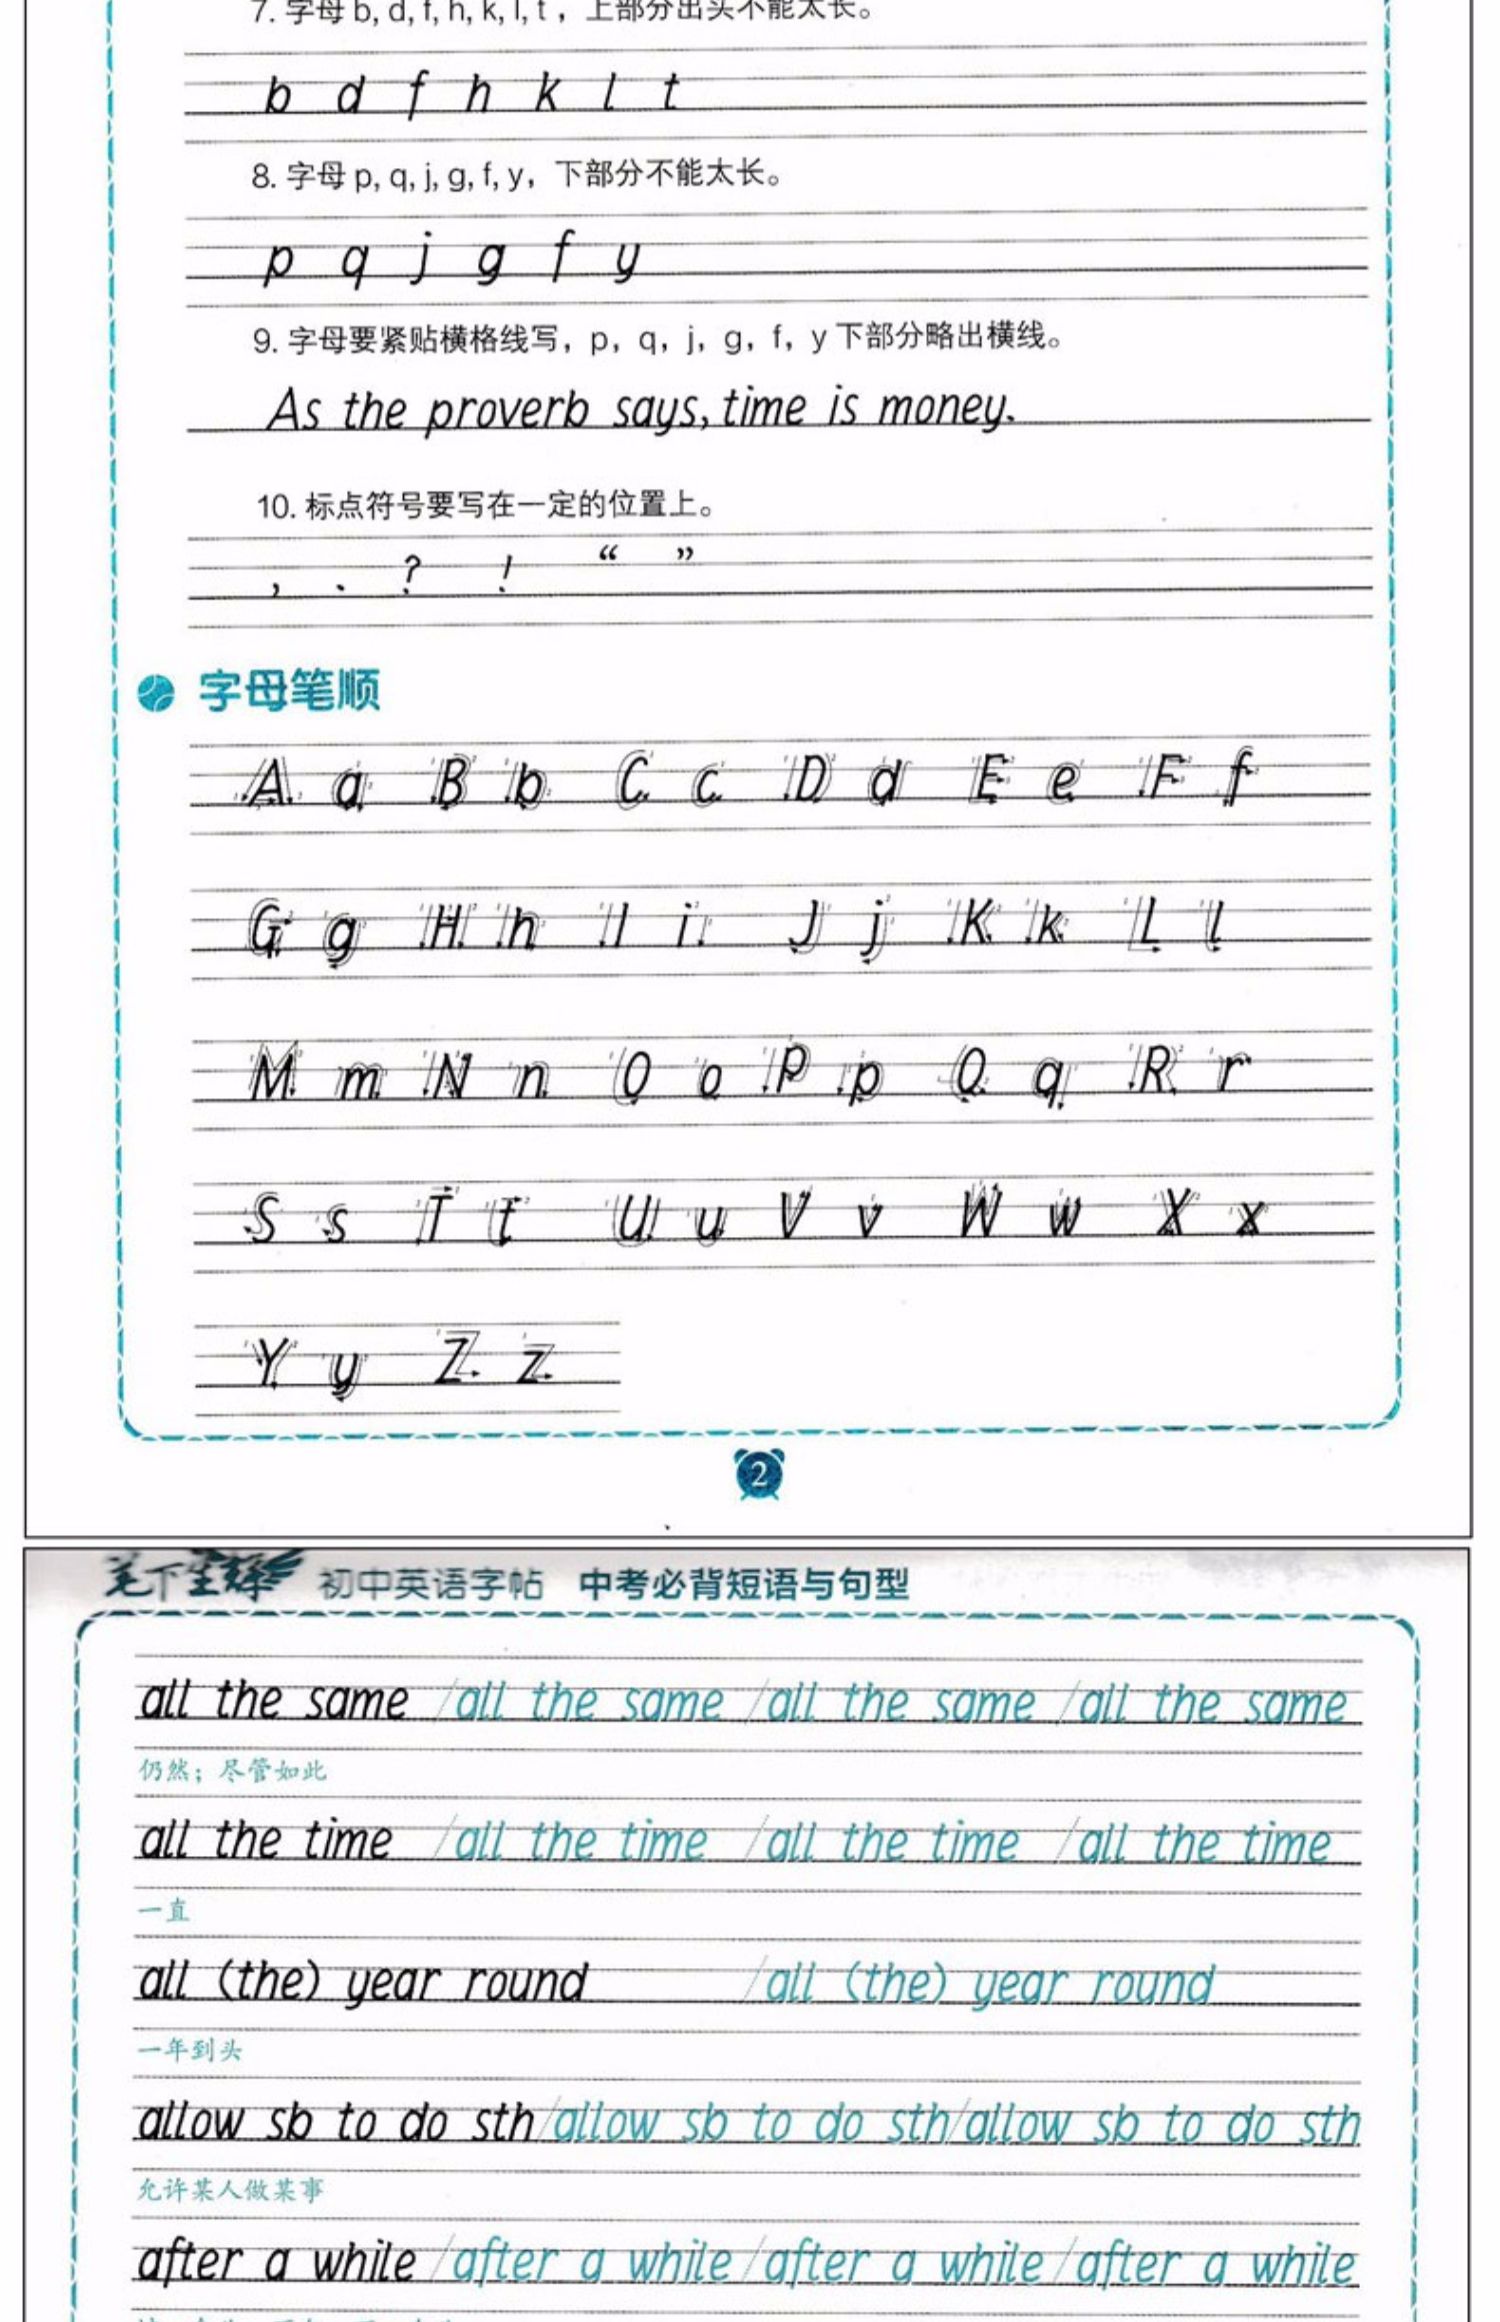 7. 字母 b, d, f, h, k, l, t ，上部分出头不能太长。
b d f h k l t
8. 字母 p, q, j, g, f, y，下部分不能太长。
p q j g f y
9. 字母要紧贴横格线写，p，q，j，g，f，y 下部分略出横线。
As the proverb says, time is money.
10. 标点符号要写在一定的位置上。
, . ? ! “ ”
字母笔顺
A a B b C c D d E e F f
G g H h I i J j K k L l
M m N n O o P p Q q R r
S s T t U u V v W w X x
Y y Z z
2
笔下生辉 初中英语字帖 中考必背短语与句型
all the same /all the same /all the same /all the same
仍然；尽管如此
all the time /all the time /all the time /all the time
一直
all (the) year round /all (the) year round
一年到头
allow sb to do sth/allow sb to do sth/allow sb to do sth
允许某人做某事
after a while /after a while /after a while /after a while